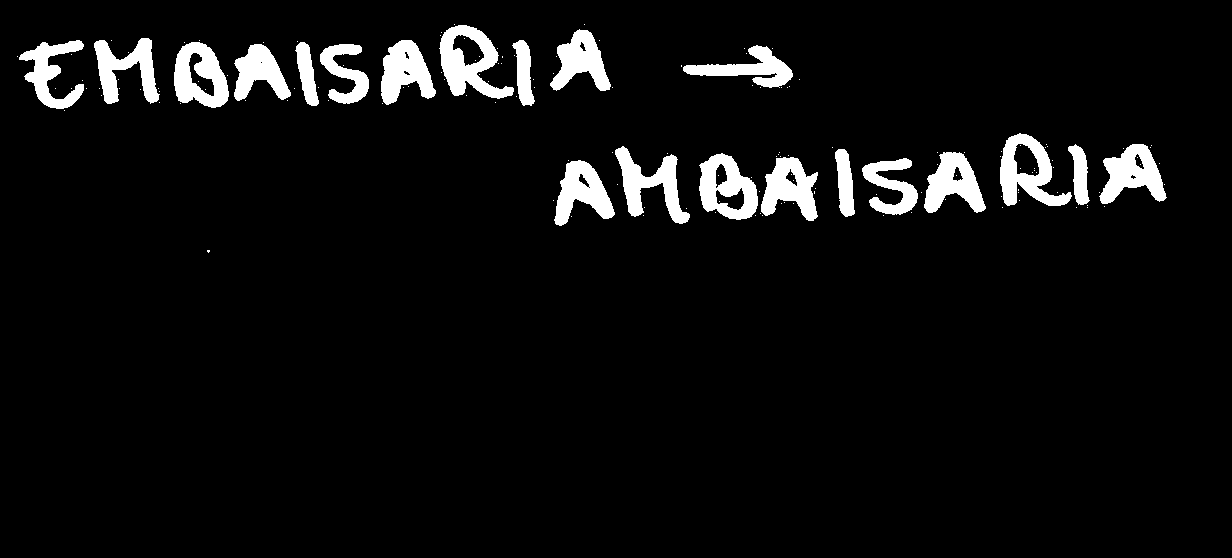 EMBAISARIA →
AMBAISARIA